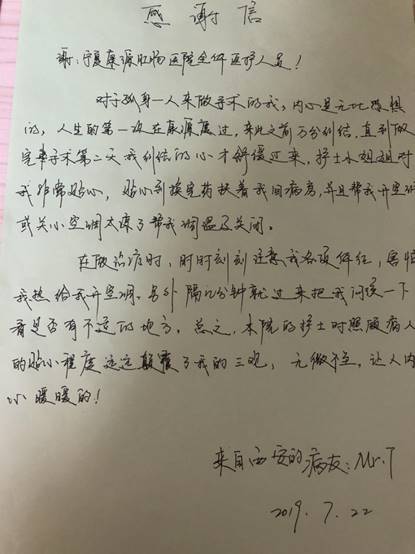 感谢信
谢：宁夏康源肛肠医院全体医护人员！
对于孤身一人来做手术的我，内心是无比恐惧
的，人生的第一次在康源度过，来此之前万分纠结，直到做
完手术第二天我纠结的心才舒缓过来，护士小姐姐对
我非常贴心，贴心到换完药扶着我回病房，并且帮我开空调
或关小空调太凉了帮我调温及关闭。
在做治疗时，时时刻刻注意我各项体征，害怕
我热给我开空调。另外隔几分钟就过来把我问候一下
看是否有不适的地方，总之，本院的护士对照顾病人
的贴心程度远远颠覆了我的三观，无微不至，让人内
心暖暖的！
来自西安的病友：Mr.T
2019.7.22